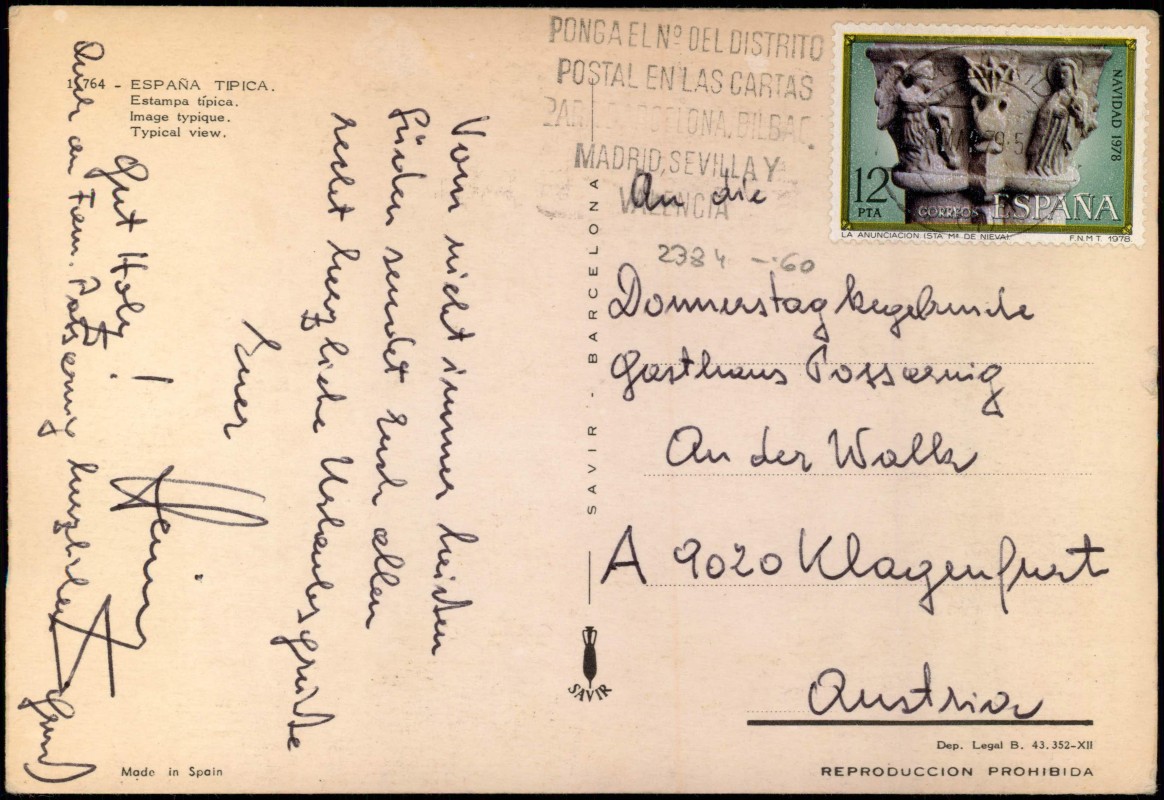 1 764 - ESPAÑA TIPICA.
Estampa típica.
Image typique.
Typical view.
Vom nicht immer heißen
Süden sendet Euch allen
recht herzliche Urlaubsgrüße
Euer
Heinz
Gut Holz!
Auch an Fam. Possarnig herzlichst
Gruß
SAVIR - BARCELONA
SAVIR
PONGA EL Nº DEL DISTRITO
POSTAL EN LAS CARTAS
PARA BARCELONA, BILBAO,
MADRID, SEVILLA Y
VALENCIA
NAVIDAD 1978
12
PTA
CORREOS ESPAÑA
LA ANUNCIACION (STA Mª DE NIEVA)
F.N.M.T. 1978
An die
2384 -·60
Donnerstagkegelrunde
Gasthaus Possarnig
An der Walk
A 9020 Klagenfurt
Austria
Dep. Legal B. 43.352-XII
REPRODUCCION PROHIBIDA
Made in Spain